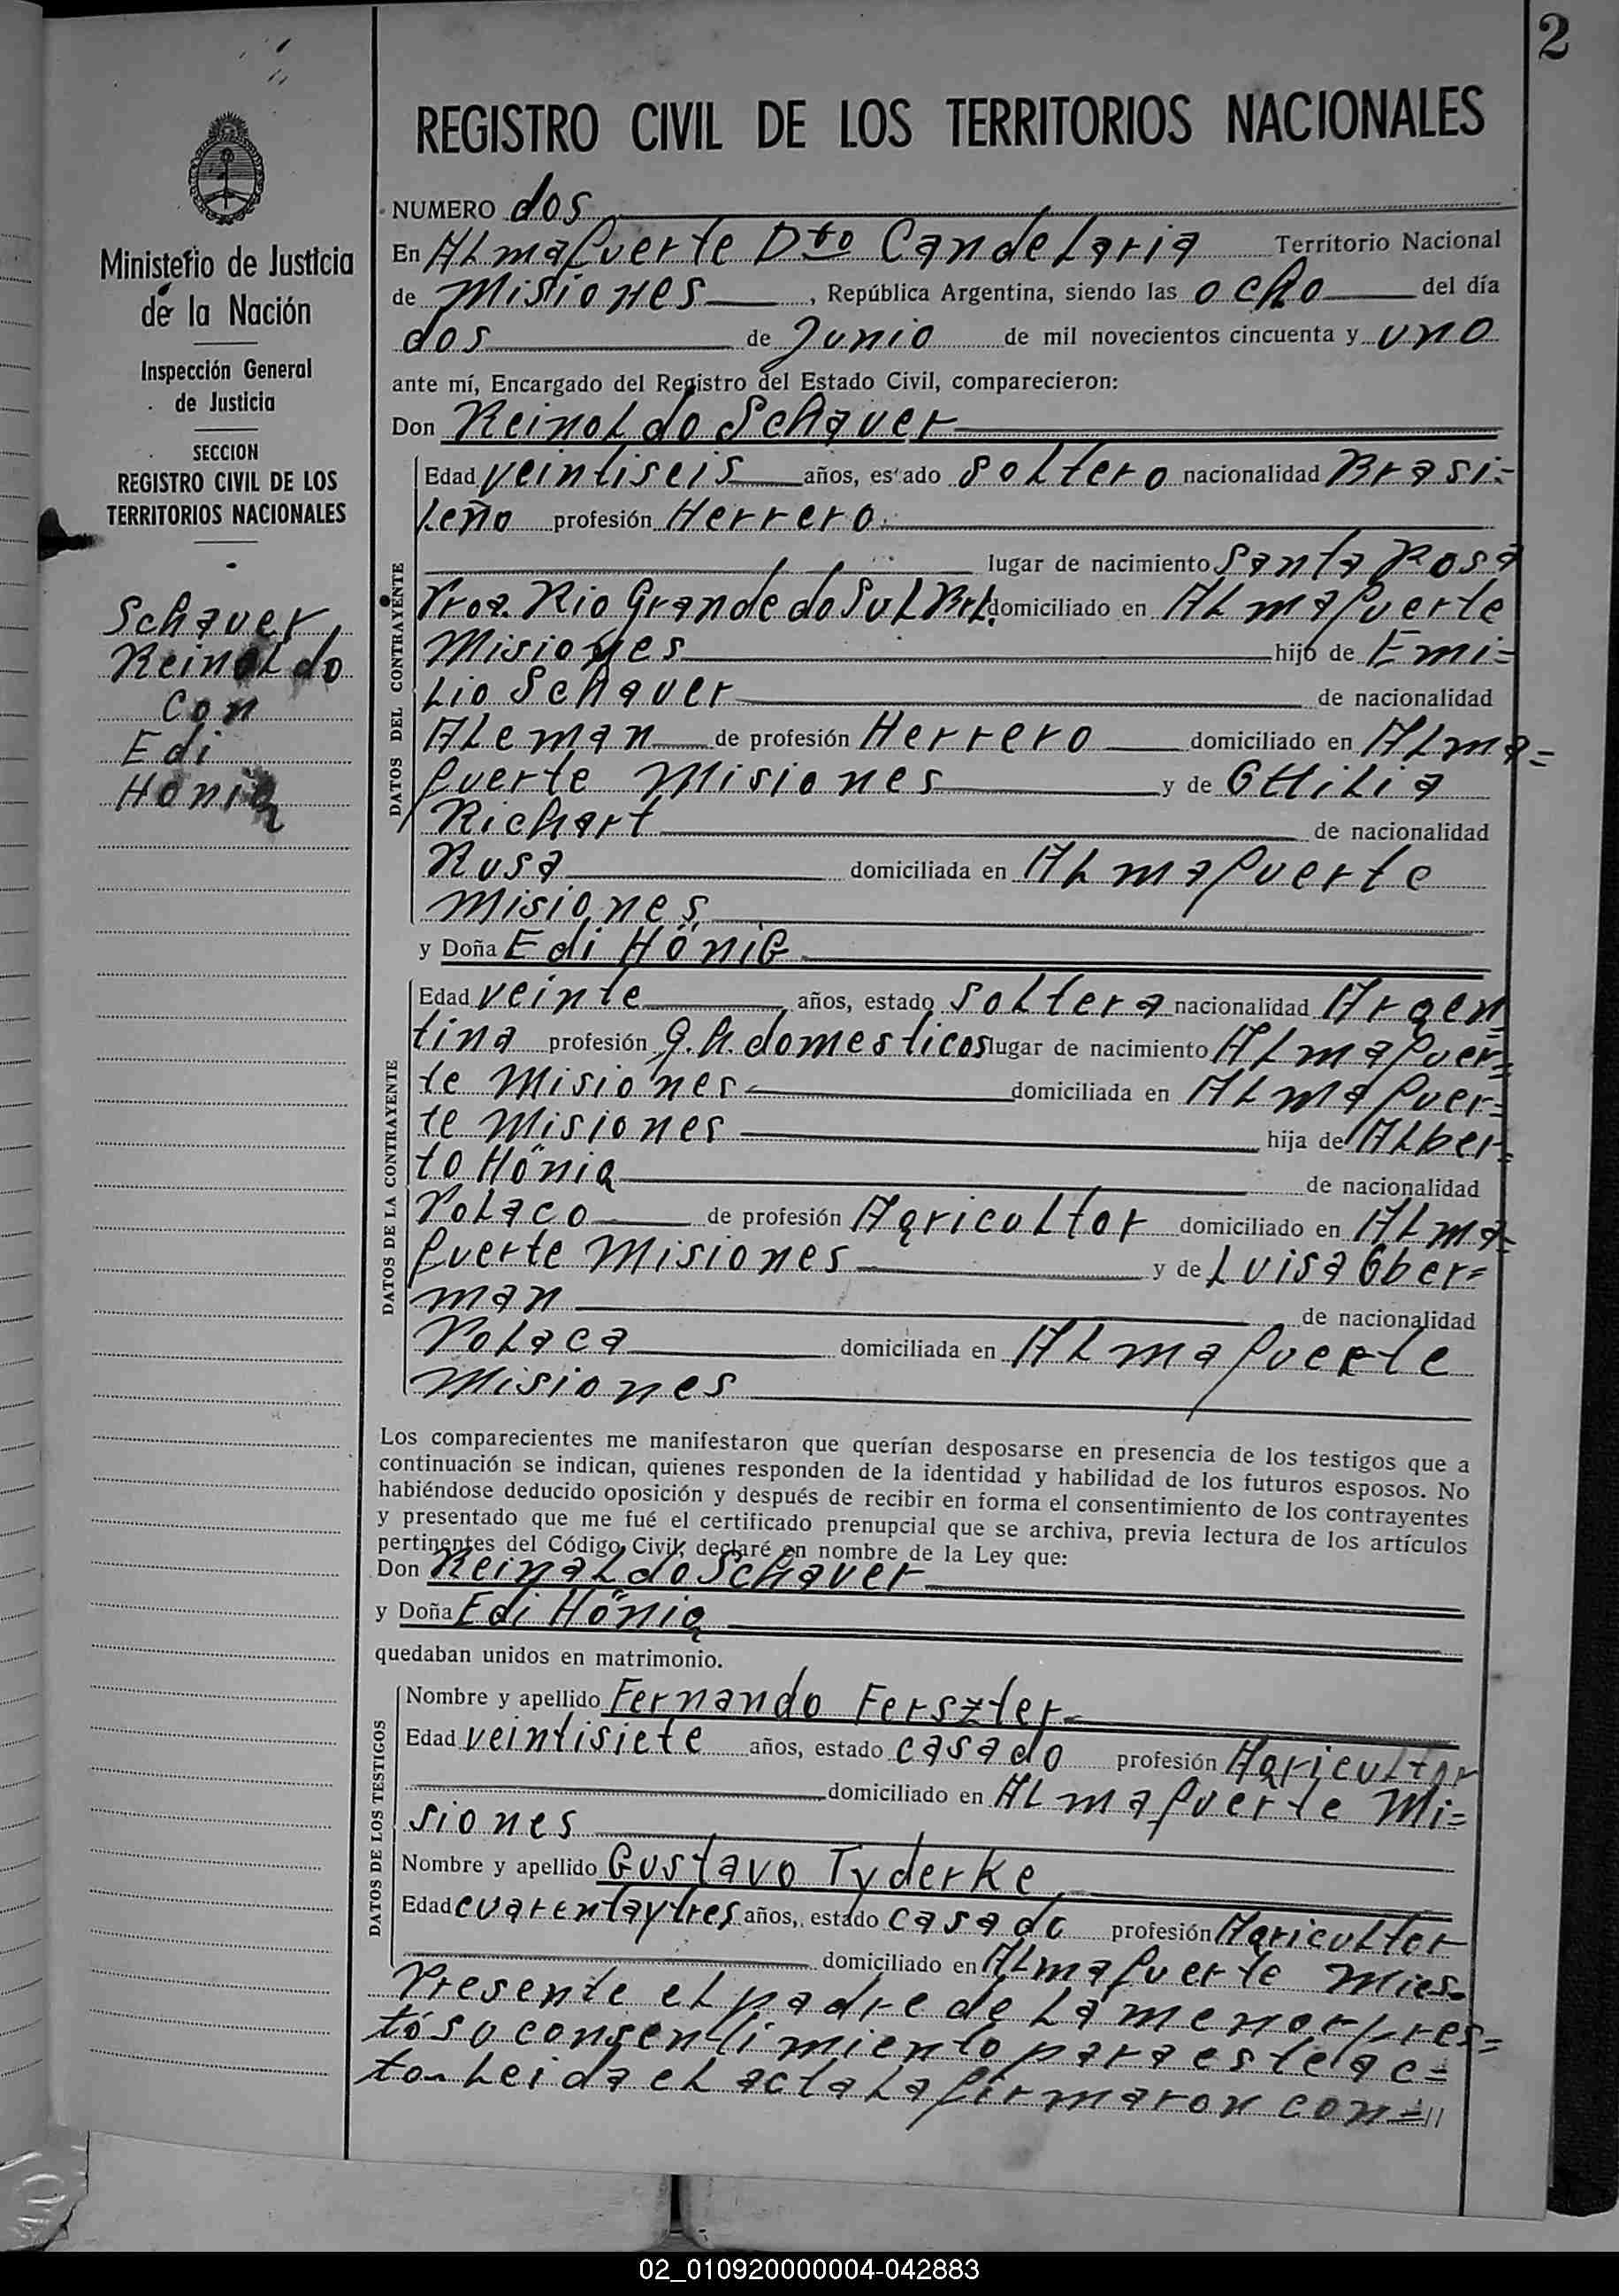 2
REGISTRO CIVIL DE LOS TERRITORIOS NACIONALES
Ministerio de Justicia
de la Nación
Inspección General
de Justicia
SECCION
REGISTRO CIVIL DE LOS
TERRITORIOS NACIONALES
Schauer
Reinoldo
con
Edi
Hönig
NUMERO dos
En ALmafuerte Dto CandeLaria Territorio Nacional
de Misiones, República Argentina, siendo las ocho del día
dos de Junio de mil novecientos cincuenta y uno
ante mí, Encargado del Registro del Estado Civil, comparecieron:
Don ReinoLdo Schauer
DATOS DEL CONTRAYENTE
Edad veintiseis años, estado soLtero nacionalidad Brasi=
Leño profesión Herrero.
lugar de nacimiento Santa Rosa
Proa. Rio Grande do SuL BrL. domiciliado en ALmafuerte
Misiones hijo de Emi=
Lio Schauer de nacionalidad
ALeman de profesión Herrero domiciliado en ALma=
fuerte Misiones y de OttiLia
Richart de nacionalidad
Rusa domiciliada en ALmafuerte
Misiones
y Doña Edi HöniG
DATOS DE LA CONTRAYENTE
Edad veinte años, estado soLtera nacionalidad Argen=
tina profesión Q.h.domesticos lugar de nacimiento ALmafuer=
te Misiones domiciliada en ALmafuer=
te Misiones hija de ALber=
to Hönig de nacionalidad
PoLaco de profesión AgricuLtor domiciliado en ALma=
fuerte Misiones y de Luisa Ober=
man de nacionalidad
PoLaca domiciliada en ALmafuerte
Misiones
Los comparecientes me manifestaron que querían desposarse en presencia de los testigos que a
continuación se indican, quienes responden de la identidad y habilidad de los futuros esposos. No
habiéndose deducido oposición y después de recibir en forma el consentimiento de los contrayentes
y presentado que me fué el certificado prenupcial que se archiva, previa lectura de los artículos
pertinentes del Código Civil, declaré en nombre de la Ley que:
Don ReinaLdo Schauer
y Doña Edi Hönig
quedaban unidos en matrimonio.
DATOS DE LOS TESTIGOS
Nombre y apellido Fernando Ferszter
Edad veintisiete años, estado casado profesión AgricuLtor
domiciliado en ALmafuerte Mi=
siones
Nombre y apellido Gustavo Tyderke
Edad cuarentaytres años, estado casado profesión AgricuLtor
domiciliado en ALmafuerte Mies.
Presente eL padre de La menor pres=
tó su consentimiento para este ac=
to. Leida eL acta La firmaron con=//
02_010920000004-042883